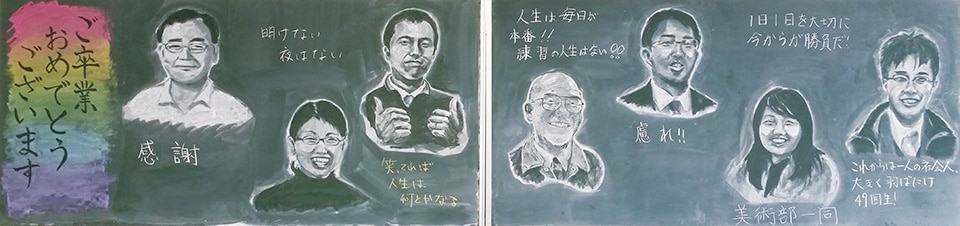 ご卒業
おめでとう
ございます
感謝
明けない
夜はない
笑ってれば
人生は
何とかなる
人生は毎日が
本番!!
練習の人生はない!!
慮れ!!
1日1日を大切に
今からが勝負だ!
これからは一人の社会人、
大きく羽ばたけ
49回生!
美術部一同